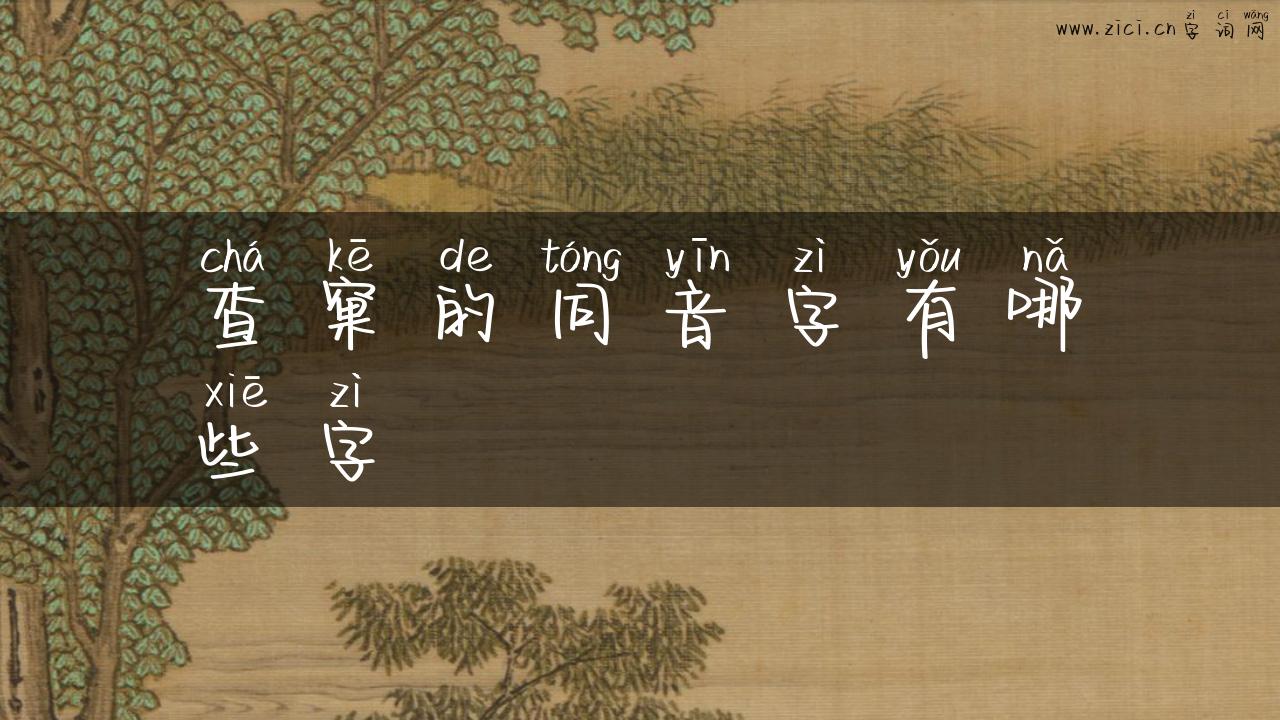 zì cí wǎng
www.zici.cn 字词网
chá kē de tóng yīn zì yǒu nǎ
查窠的同音字有哪
xiē zì
些字